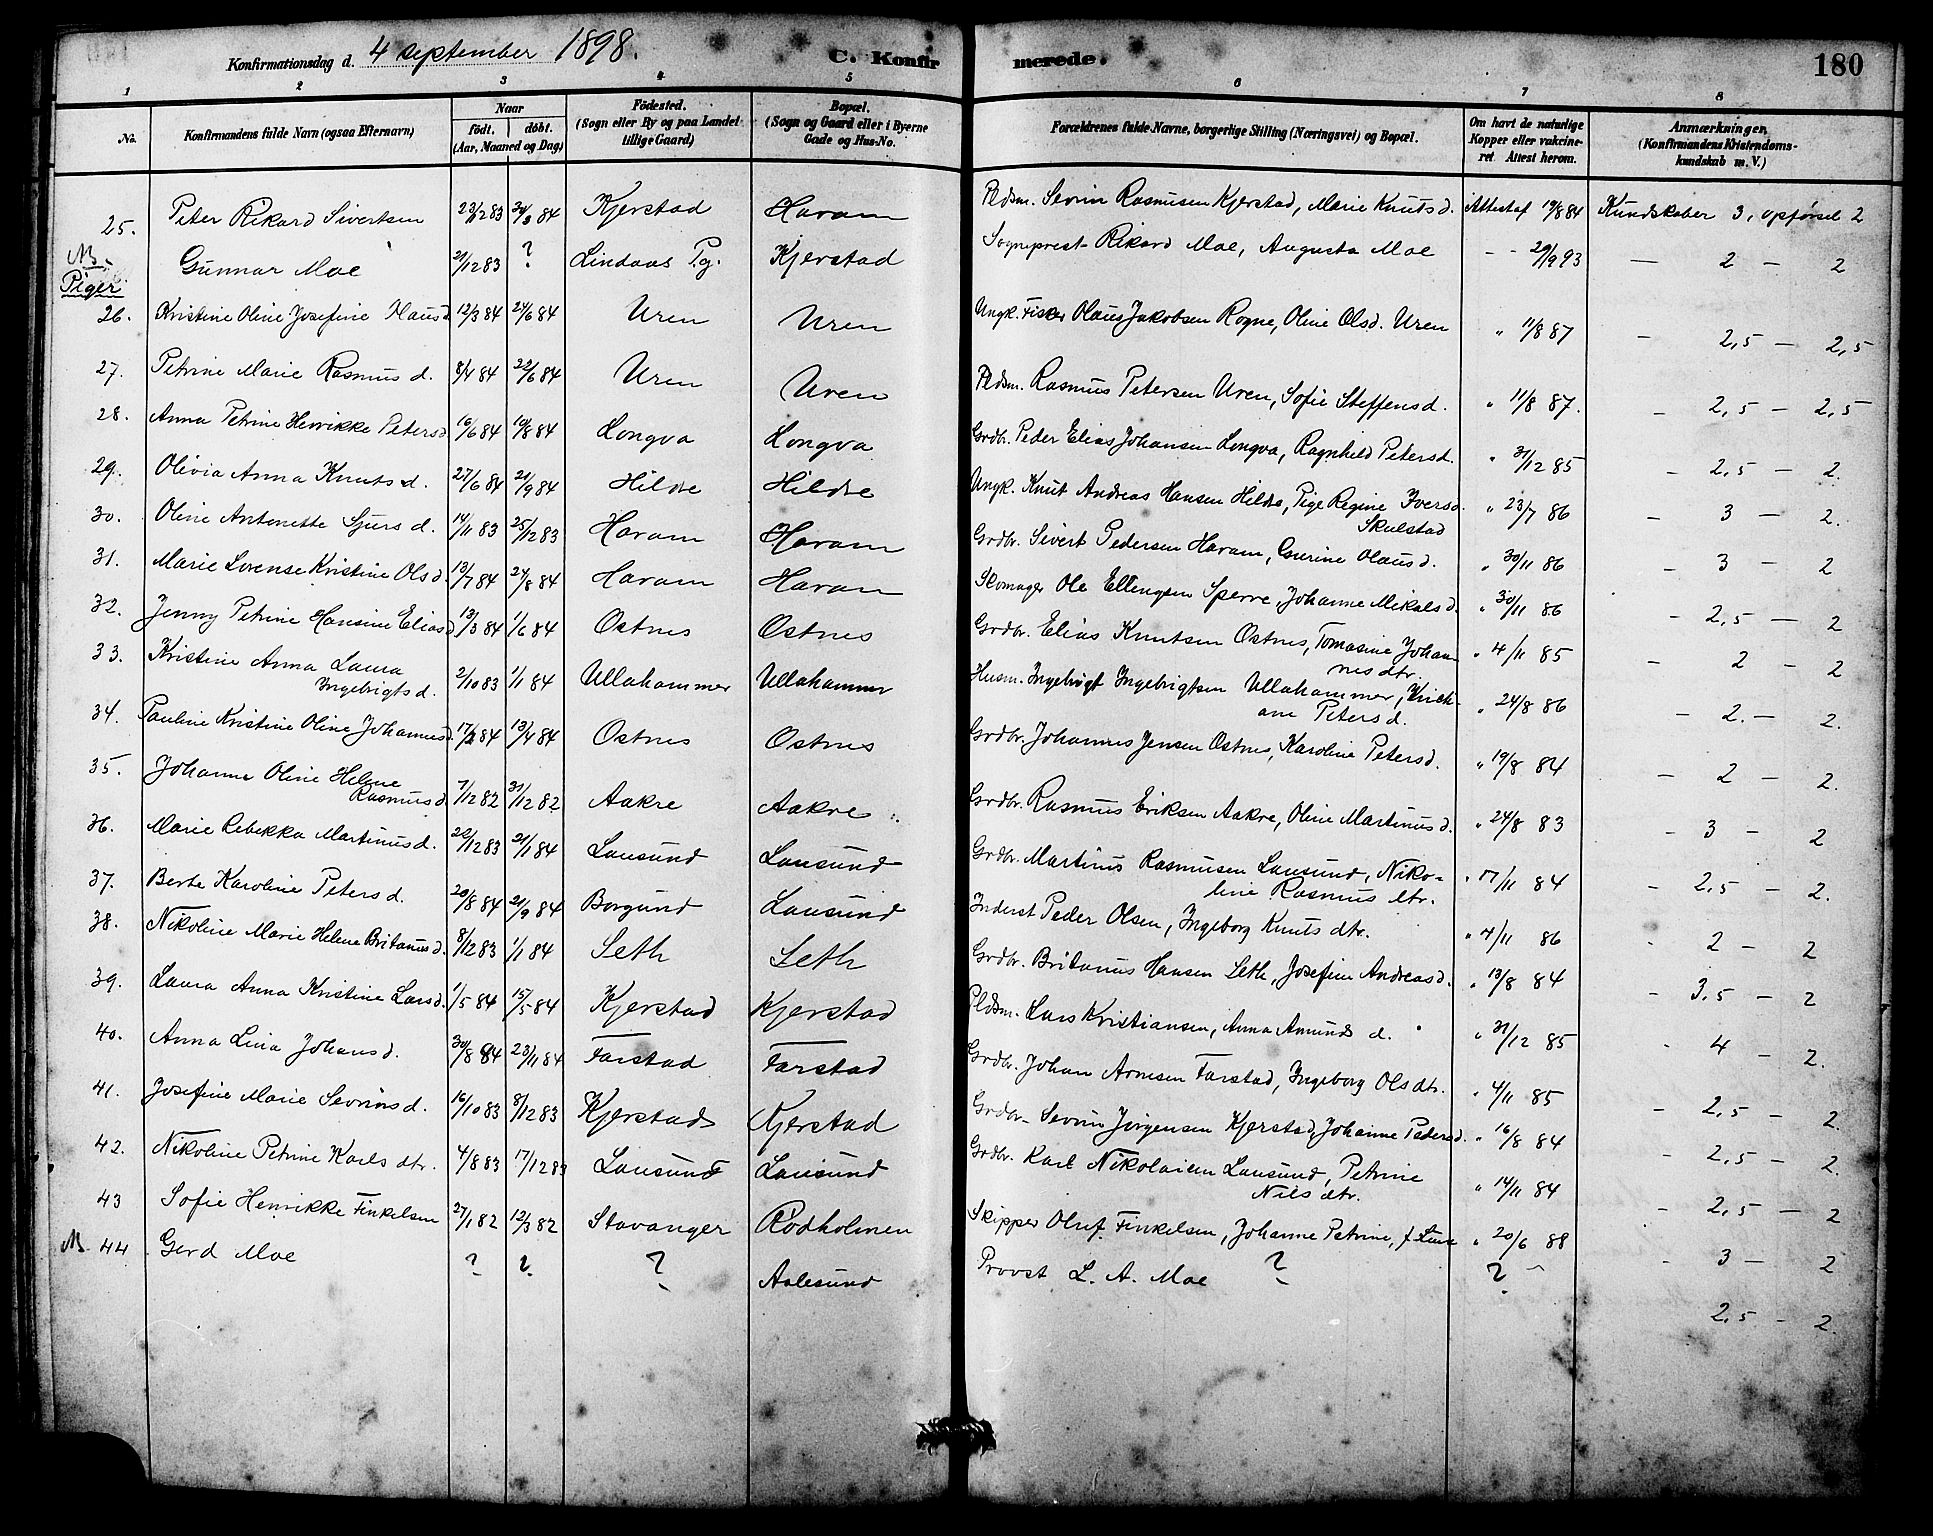 Konfirmationsdag d. 4 september 1898. C. Konfirmerede. 180
1 2 3 4 5 6 7 8
No. Konfirmandens fulde Navn (ogsaa Efternavn) Naar født. døbt. (Aar, Maaned og Dag) Födested. (Sogn eller By og paa Landet tillige Gaard) Bopæl. (Sogn og Gaard eller i Byerne Gade og Hus-No. Forældrenes fulde Navne, borgerlige Stilling (Næringsvei) og Bopæl. Om havt de naturlige Kopper eller vakcineret. Attest herom. Anmærkninger. (Konfirmandens Kristendomskundskab m. V.)
25. Peter Rikard Sivertsen 23/12 83 84 Kjerstad Haram Pldsm. Sevrin Rasmusen Kjerstad, Marie Knutsd. Attestaf 19/8 84 Kundskaber 3, opførsel 2
Gunnar Moe 21/12 83 ? Lindaas Pg. Kjerstad Sogneprest Rikard Moe, Augusta Moe - - 29/9 93 — 2 — 2
Piger
26. Kristine Oline Josefine Olausd. 12/3 84 24/6 84 Uren Uren Ungk. Fisker Olaus Jakobsen Rogne, Oline Olsd. Uren " 11/8 87 — 2,5 — 2,5
27. Petrine Marie Rasmusd. 8/4 84 22/6 84 Uren Uren Pldsm. Rasmus Petersen Uren, Sofie Steffensd. " 11/8 87. — 2,5 — 2,5
28. Anna Petrine Henrikke Petersd. 16/6 84 19/8 84 Longva Longva Grdbr. Peder Elias Johansen Longva, Ragnhild Petersd. " 31/12 85 — 2,5 — 2.
29. Olivia Anna Knutsd. 27/6 84 21/9 84 Hildre Hildre Ungk. Knut Andreas Hansen Hildre, Pige Regine Iversd. Skulstad " 23/7 86 — 3 — 2.
30. Oline Antonette Sjursd. 14/11 83 25/12 83 Haram Haram Grdbr. Sivert Pedersen Haram, Gurine Olausd. " 30/11 86 — 3 — 2
31. Marie Lorense Kristine Olsd. 13/7 84 24/8 84 Haram Haram Skomager Ole Ellengsen Sperre, Johanne Mikalsd. " 30/11 86 — 2,5 — 2
32. Jenny Petrine Hansine Eliasd. 13/3 84 1/6 84 Ostnes Ostnes Grdbr. Elias Knutsen Ostnes, Tomasine Johannesdtr. " 4/11 85 — 2 — 2
33. Kristine Anna Laura Ingebrigtsd. 2/10 83 1/1 84 Ullahammer Ullahammer Husm. Ingebrigt Ingebrigtsen Ullahammer, Petersd. " 24/8 86 — 2. — 2.
34. Pauline Kristine Oline Johannesd. 84 13/4 84 Ostnes Ostnes Grdbr. Johannes Jensen Ostnes, Karoline Petersd. " 19/8 84 — 2 — 2.
35. Johanne Oline Helene Rasmusd. 7/12 82 31/12 82 Aakre Aakre Grdbr. Rasmus Eriksen Aakre, Oline Martinusd. " 24/8 83 — 3 — 2
36. Marie Rebekka Martinusd. 22/12 83 21/1 84 Lausund Lausund Grdbr. Martinus Rasmusen Lausund, Nikoline Rasmusdtr. " 17/11 84 — 2,5 — 2.
37. Berte Karoline Petersd. 20/8 84 21/9 84 Borgund Lausund Inderst Peder Olsen, Ingeborg Knutsdtr. " 4/11 86 - 2 — 2
38. Nikoline Marie Helene Britanusd. 8/12 83 1/1 84 Seth Seth Grdbr. Britanus Hansen Seth, Josefine Andreasd. " 13/8 84 — 3,5 — 2
39. Laura Anna Kristine Larsd. 1/5 84 15/5 84 Kjerstad Kjerstad Pldsm. Lars Kristiansen, Anna Amundsd. " 31/12 85 - 4 — 2.
40. Anna Lina Johansd. 30/8 84 23/11 84 Farstad Farstad Grdbr. Johan Arnesen Farstad, Ingeborg Olsdtr. " 4/11 85 — 2,5 — 2.
41. Josefine Marie Sevrinsd. 16/10 83 8/12 83 Kjerstad Kjerstad Grdbr. Sevrin Jørgensen Kjerstad, Johanne Pedersd. " 16/8 84 — 2,5 — 2.
42. Nikoline Petrine Karlsdtr. 4/8 83 17/12 83 Lausund Lausund Grdbr. Karl Nikolaisen Lausund, Petrine Nilsdtr. " 14/11 84 — 2,5 — 2
43 Sofie Henrikke Finkelsen 27/1 82 12/3 82 Stavanger Rødholmen Skipper Oluf Finkelsen, Johanne Petrine, f. " 20/6 88 - 3 — 2
44. Gerd Moe ? ? ? Aalesund Provst L. A. Moe ? ? 2,5 - 2.